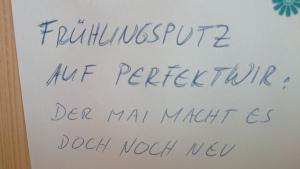 FRÜHLINGSPUTZ
AUF PERFEKTWIR:
DER MAI MACHT ES
DOCH NOCH NEU